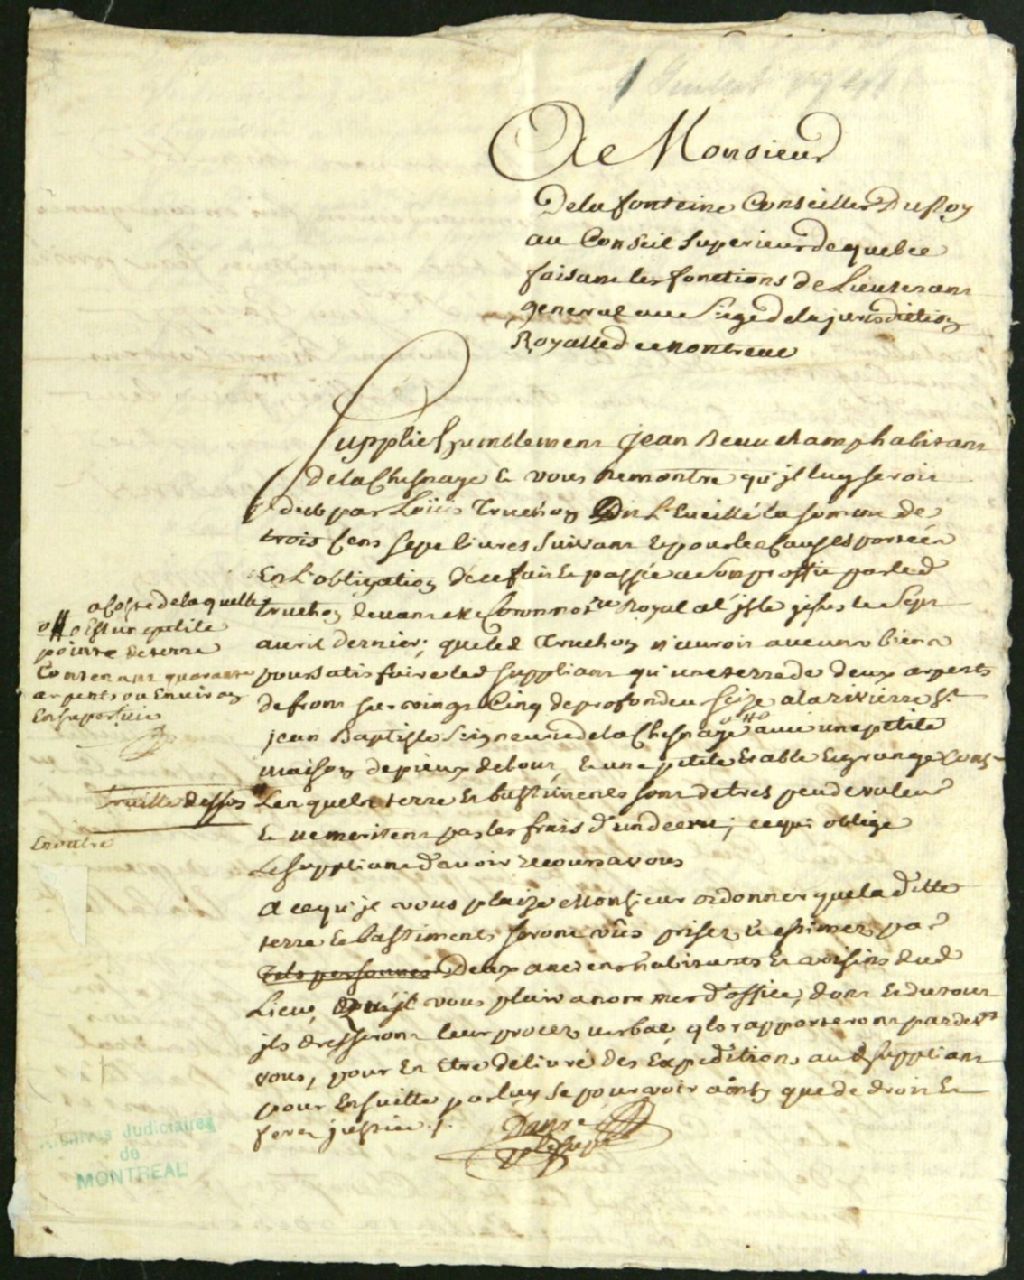 A Monsieur
De la fonteine Conseiller Du Roy
au Conseil Superieur de quebec
faisant les fonctions de Lieutenant
general au Siege de la jurisdiction
Royalle de montreal
Supplie humblement jean Beauchamp habitant
de la Chesnaye & vous Remontre qu'jl luy seroit
dub par Loüis Truchon dit L'Eueillé la somme de
trois Cens sept liures suiuant & pour les Causes portées
En L'obligation de ce faite & passée a son proffit par led
truchon deuant Me Royal a l'jsle jesus le Sept
auril dernier; que led Truchon n'auroit aucuns biens
pour satisfaire led suppliant qu'une terre de deux arpents
de front sur Cinq de profondeur size a la rivierre St
jean Baptiste Seigneurie de la Chesnaye auec une petite
maison de pieux debout, & une petite Etable & grange
Lan quelle terre & bastimens sont de tres peu de valeur
& ne meritent pas les frais d'un decret; ce qui oblige
Le suppliant d'auoir recours a vous
A ce qu'jl vous plaise Monsieur ordonner que la ditte
terre & bastiments seront vûs prisez & estimez par
Tels personnes deux anciens habitants & voisins dud
Lieu, qu'jl vous plaira nommer d'office, dont & du tout
jls dresseront leur procez verbal qls rapporteront pardt
vous, pour En Etre deliuré des Expeditions aud suppliant
pour Ensuitte par luy se pouruoir ainsy que de droit &
ferez justice /.
Danré
a Costé de la quelle
Est une petite
pointe de terre
Contenant quarante
arpents ou Enuiron
En superficie
Archives Judiciaires
de
MONTREAL